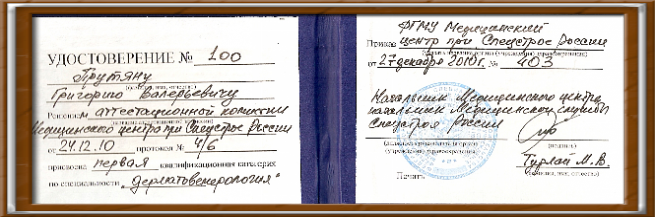 УДОСТОВЕРЕНИЕ № 100
Прутяну
Григорию Валерьевичу
Решением аттестационной комиссии
Медицинского центра при Спецстрое России
от 24.12.10 протокол № 4/6
присвоена первая квалификационная категория
по специальности „Дерматовенерология"
ФГМУ Медицинский
Приказ центр при Спецстрое России
от 27 декабря 2010г. № 403
Начальник Медицинского центра,
начальник Медицинской службы
Спецстроя России
(подпись)
Турлай М.В.
Печать